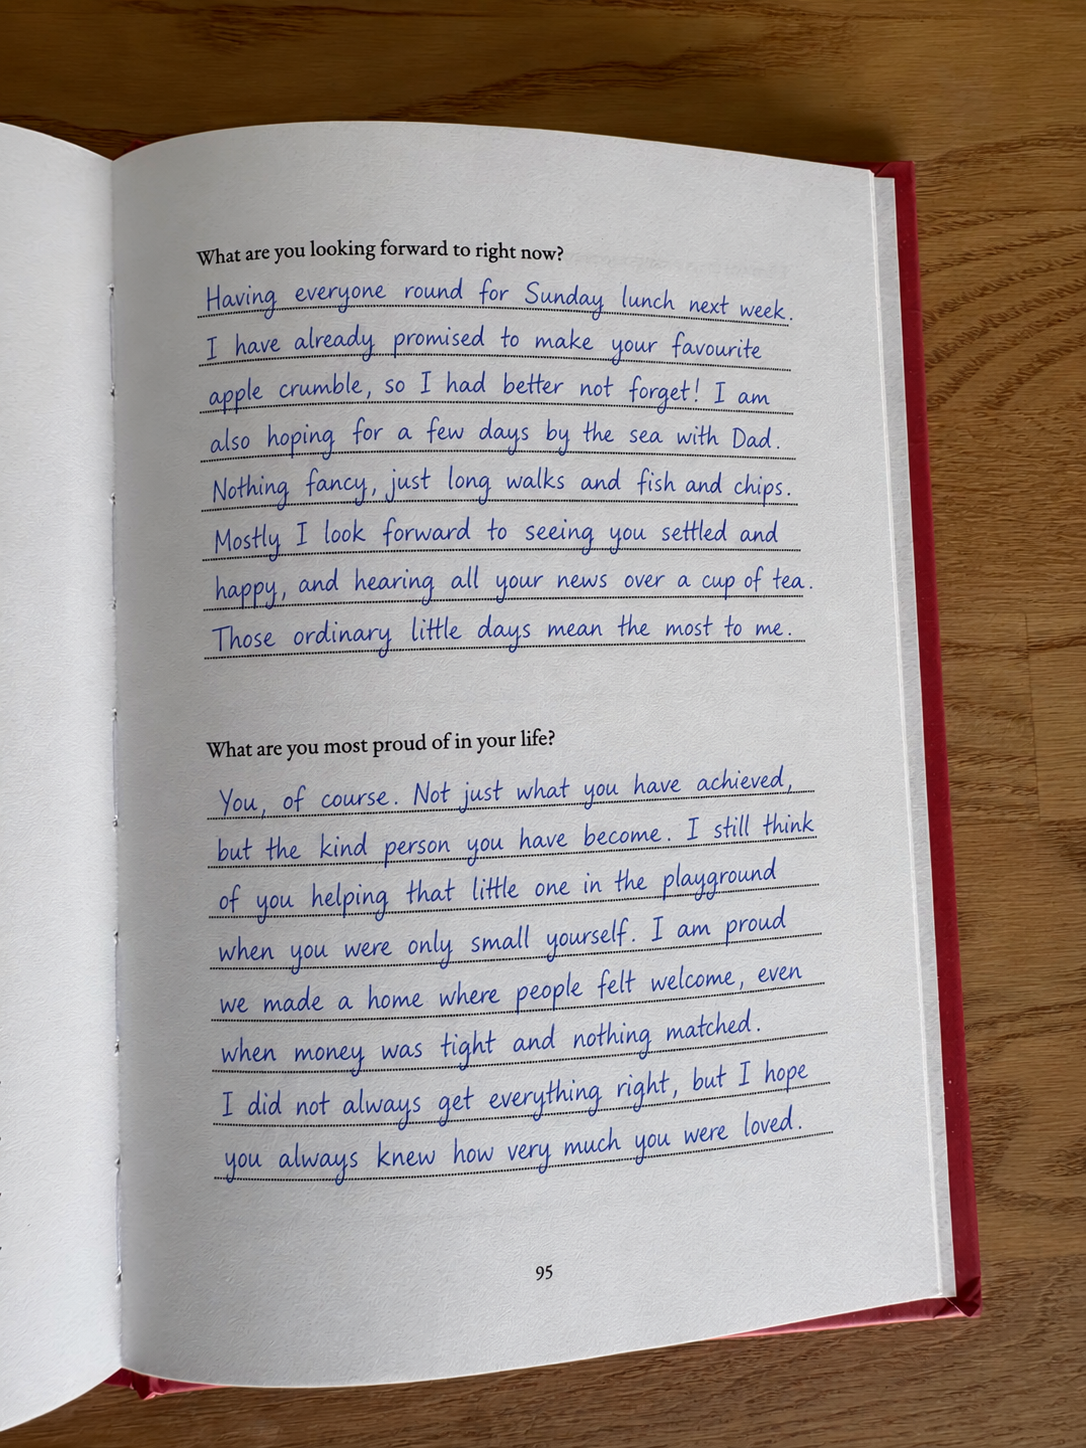 What are you looking forward to right now?
Having everyone round for Sunday lunch next week.
I have already promised to make your favourite
apple crumble, so I had better not forget! I am
also hoping for a few days by the sea with Dad.
Nothing fancy, just long walks and fish and chips.
Mostly I look forward to seeing you settled and
happy, and hearing all your news over a cup of tea.
Those ordinary little days mean the most to me.
What are you most proud of in your life?
You, of course. Not just what you have achieved,
but the kind person you have become. I still think
of you helping that little one in the playground
when you were only small yourself. I am proud
we made a home where people felt welcome, even
when money was tight and nothing matched.
I did not always get everything right, but I hope
you always knew how very much you were loved.
95